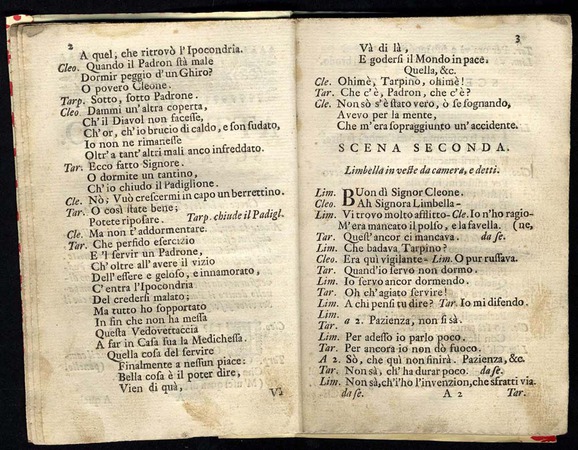 2
A quel, che ritrovò l'Ipocondria.
Cleo. Quando il Padron stà male
Dormir peggio d'un Ghiro?
O povero Cleone.
Tarp. Sotto, sotto Padrone.
Cleo. Dammi un'altra coperta,
Ch'il Diavol non facesse,
Ch'or, ch'io brucio di caldo, e son sudato,
Io non ne rimanesse
Oltr'a tant'altri mali anco infreddato.
Tar. Ecco fatto Signore.
O dormite un tantino,
Ch'io chiudo il Padiglione.
Cle. Nò; Vuò crescermi in capo un berrettino.
Tar. O così state bene;
Potete riposare. Tarp. chiude il Padigl.
Cle. Ma non t'addormentare.
Tar. Che perfido esercizio
E 'l servir un Padrone,
Ch'oltre all'avere il vizio
Dell'essere e geloso, e innamorato,
C'entra l'Ipocondria
Del credersi malato;
Ma tutto ho sopportato
In fin che non ha messa
Questa Vedovettaccia
A far in Casa sua la Medichessa.
Quella cosa del servire
Finalmente a nessun piace:
Bella cosa è il poter dire,
Vien di quà,
Và
3
Và di là,
E godersi il Mondo in pace.
Quella, &c.
Cle. Ohimè, Tarpino, ohimè!
Tar. Che c'è, Padron, che c'è?
Cle. Non sò s'è stato vero, ò se sognando,
Avevo per la mente,
Che m'era sopraggiunto un'accidente.
SCENA SECONDA.
Limbella in veste da camera, e detti.
Lim. BUon dì Signor Cleone.
Cleo. Ah Signora Limbella-
Lim. Vi trovo molto afflitto- Cle. Io n'ho ragio-
M'era mancato il polso, e la favella. (ne,
Tar. Quest'ancor ci mancava. da se.
Lim. Che badava Tarpino?
Cleo. Era quì vigilante- Lim. O pur russava.
Tar. Quand'io servo non dormo.
Lim. Io servo ancor dormendo.
Tar. Oh ch'agiato servire!
Lim. A chi pensi tu dire? Tar. Io mi difendo.
Lim.
Tar. a 2. Pazienza, non si sà.
Lim. Per adesso io parlo poco.
Tar. Per ancora io non dò fuoco.
A 2. Sò, che quì non finirà. Pazienza, &c.
Tar. Non sà, ch'ha durar poco. da se.
Lim. Non sà, ch'i'ho l'invenzion, che sfratti via.
da se. A 2 Tar.